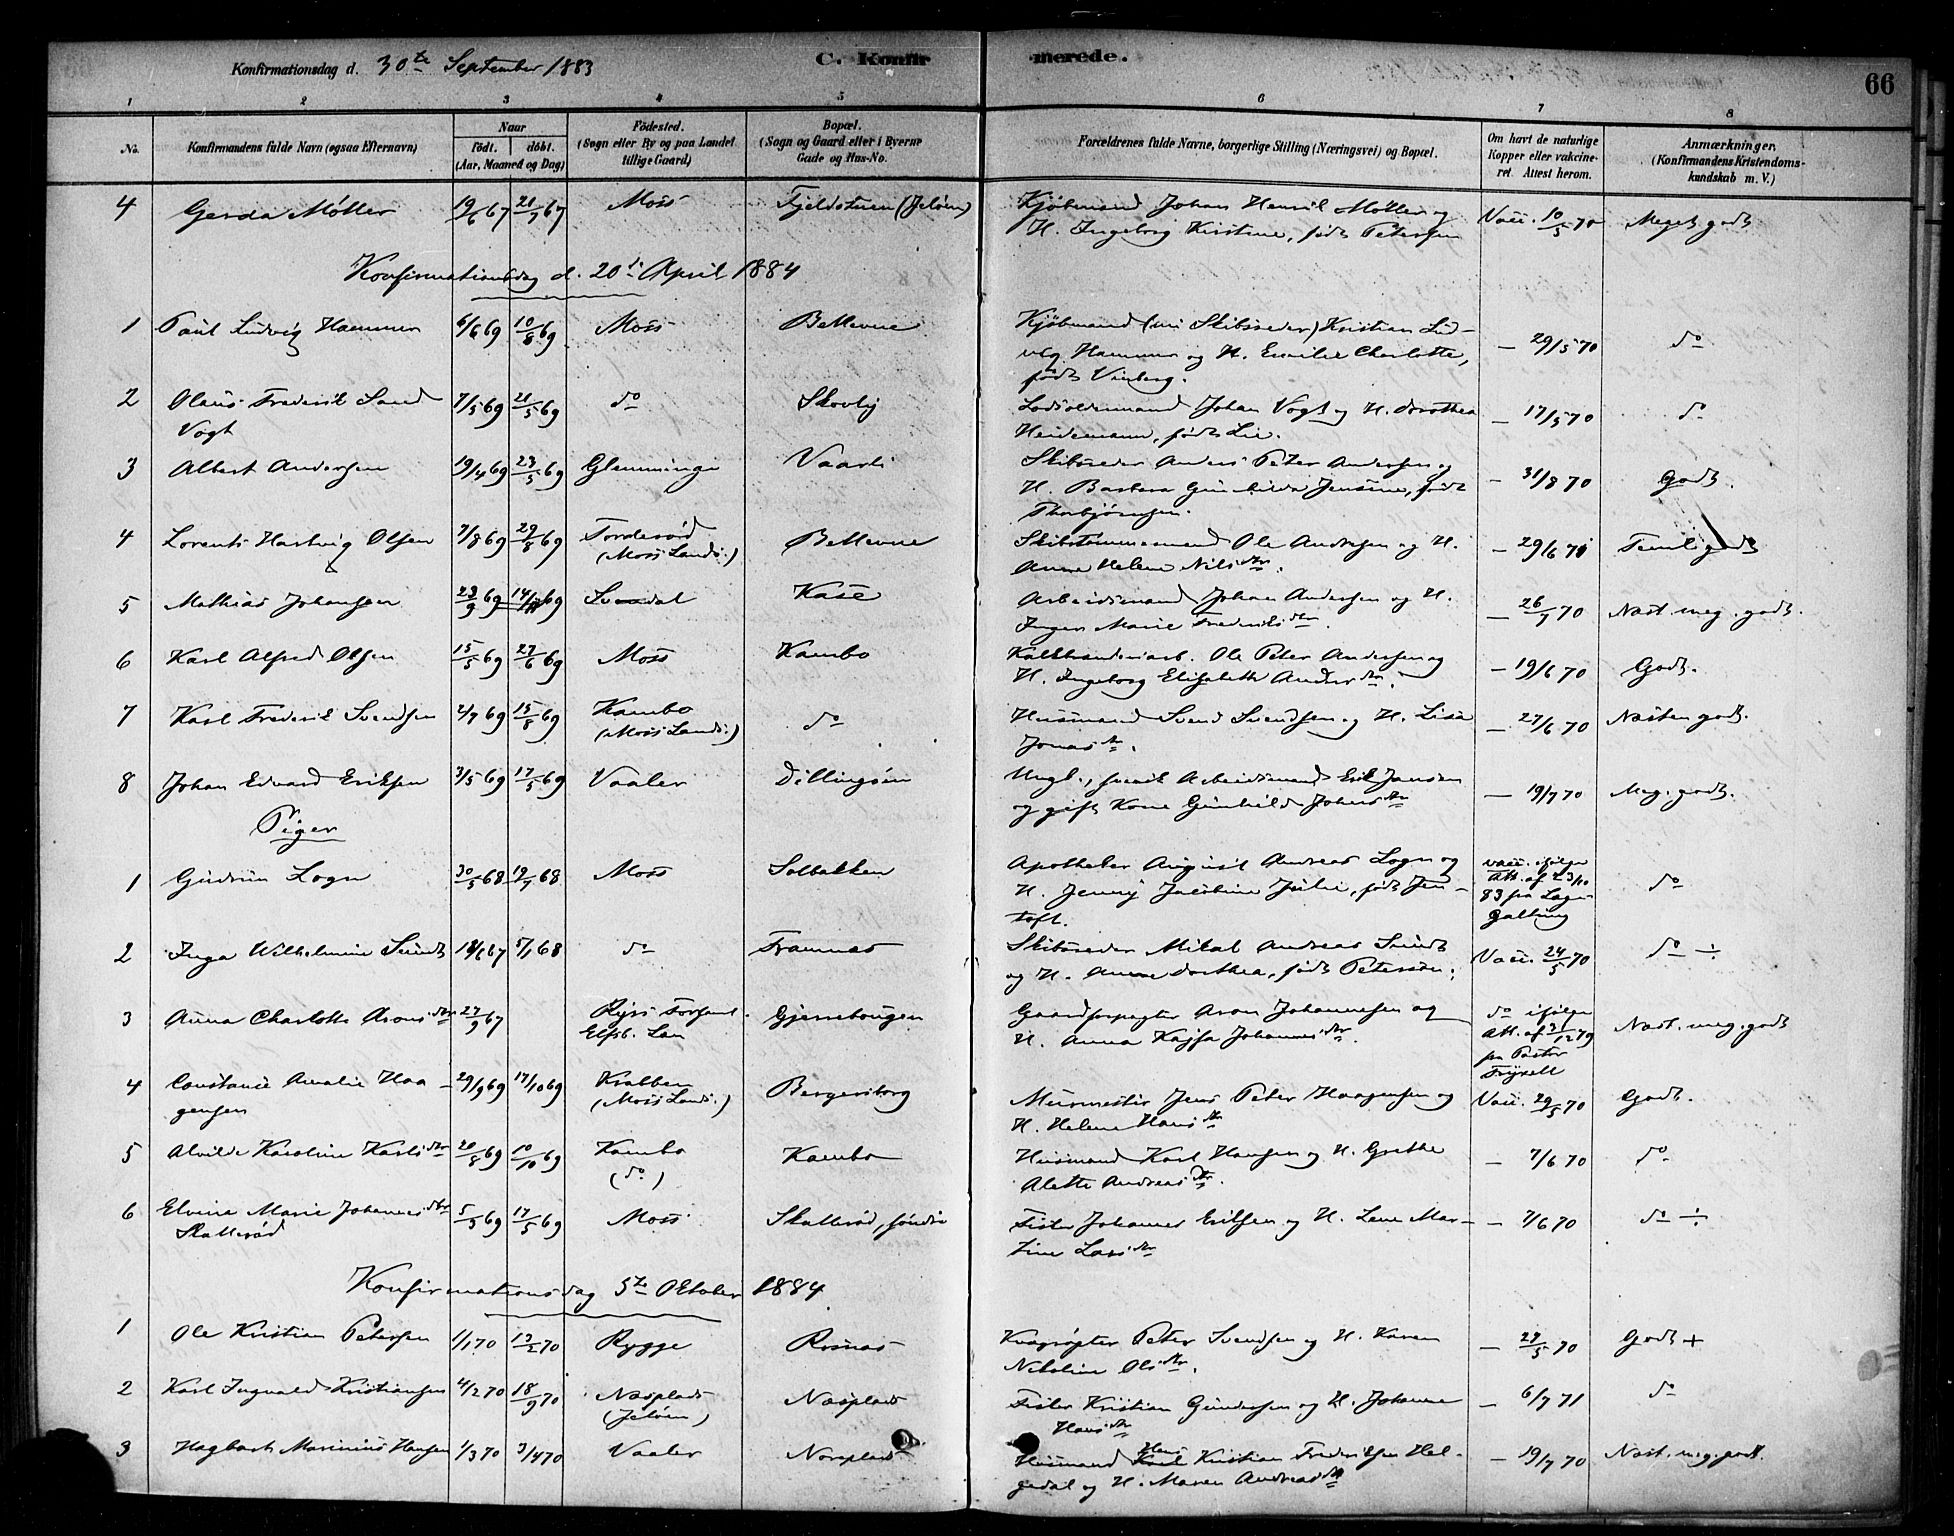 Konfirmationsdag d. 30te September 1883 C. Konfirmerede. 66
1 2 3 4 5 6 7 8
No. Konfirmandens fulde Navn (ogsaa Efternavn) Naar födt. döbt. (Aar, Maaned og Dag) Födested. (Sogn eller By og paa Landet tillige Gaard) Bopæl. (Sogn og Gaard eller i Byerne Gade og Hus-No. Forældrenes fulde Navne, borgerlige Stilling (Næringsvei) og Bopæl. Om havt de naturlige Kopper eller vakcineret. Attest herom. Anmærkninger. (Konfirmandens Kristendomskundskab m. V.)
4 Gerda Møller 19/6 67 21/7 67 Moss Fjeldstuen (Jeløen) Kjøbmand Johan Henrik Møller og Vacc. 10/5 70 Meget godt
H. Ingeborg Kristine, født Petersen
Konfirmationsdag d. 20de April 1884
1 Paul Ludvig Hammer 6/6 69 10/8 69 Moss Bellevue Kjøbmand (nu Skibsreder) Kristian Lud- — 29/5 70 do
vig Hammer og H. Emilie Charlotte,
født Vinberg.
2 Olaus Frederik Sand 7/5 69 21/5 69 do Skovly Lodsoldermand Johan Vogt og H. Dorothea — 17/5 70 do
Vogt Heidemann, født Lie.
3 Albert Andersen 19/4 69 23/5 69 Glemminge Vaarli Skibsreder Anders Peter Andersen og — 31/8 70 Godt.
H. Barbara Gunhilda Jensine, født
Thorbjørnsen.
4 Lorents Hartvig Olsen 7/8 69 29/8 69 Torderød Bellevue Skibstømmermand Ole Andersen og H. — 29/6 71 Temlig godt
(Moss Lands.) Anne Helene Nilsdtr.
5 Mathias Johansen 23/9 69 14/11 69 Svendal Kase Arbeidsmand Johan Andersen og H. — 26/7 70 Næst. meg. godt.
Inger Marie Frederiksdtr.
6 Karl Alfred Olsen 15/5 69 27/6 69 Moss Kambo Kalkbrænderiarb. Ole Peter Andersen og — 19/6 70 Godt.
H. Ingeborg Elisabeth Andersdtr.
7 Karl Frederik Svendsen 2/7 69 15/8 69 Kambo do Husmand Svend Svendsen og H. Lisa — 27/6 70 Næsten godt.
(Moss Lands.) Jonasdtr.
8 Johan Edvard Eriksen 3/5 69 17/5 69 Vaaler Dillingøen Ungk., svensk Arbeidsmand Erik Jansen — 19/7 70 Meg. godt.
og gift Kone Gunhild Johnsdtr
Piger
1 Gudrun Logn 30/5 68 19/7 68 Moss Solbakken Apotheker August Andreas Logn og vacc. ifølge do
H. Jenny Jacobine Julie, født Jen- Att. af 23/10
toft. 83 fra Læge
Galtung
2 Inga Wilhelmine Sundt 18/6 67 5/1 68 do Framnæs Skibsreder Mikal Andreas Sundt Vacc. 24/5 70 do ÷
og H. Anne Dorthea, født Peterson.
3 Anna Charlotte Aronsdtr 27/9 67 Elfsb. Län Gjerrebougen Gaardforpagter Aron Johannesen og do ifølge Næst. meg. godt
H. Anna Kajsa Johannesdtr. Att. af 3/12 79
fra Pastor
Fryxell
4 Constance Amalie Haa- 29/9 69 17/10 69 Krabben Bergersborg Murmester Jens Peter Haagensen og Vacc. 29/5 70 Godt.
gensen (Moss Lands.) H. Helene Hansdtr
5 Alvilde Karoline Karlsdtr 20/8 69 10/10 69 Kambo Kambo Husmand Karl Hansen og H. Grethe — 7/6 70 do
(do) Alette Andreasdtr.
6 Elvine Marie Johannesdtr 5/3 69 17/5 69 Moss Skallerød, søndre Fisker Johannes Eriksen og H. Lene Mar- — 7/6 70 do ÷
Skallerød tine Larsdtr
Konfirmationsdag 5te Oktober 1884
1 Ole Kristian Petersen 1/1 70 13/2 70 Rygge Rosnæs Kvægrøgter Peter Svendsen og H. Karen — 29/5 70 Godt +
Nikoline Olsdtr.
2 Karl Ingvald Kristiansen 4/2 70 18/9 70 Næsplads Næsplads Fisker Kristian Gundersen og H. Johanne — 6/7 71 do
(Jeløen) Hansdtr
3 Hagbart Marinius Hansen 1/3 70 3/4 70 Vaaler Noreplads Husmand Hans Kristian Frederiksen Hel- — 19/7 70 Næst. meg. godt.
gedal og H. Maren Andreasdtr